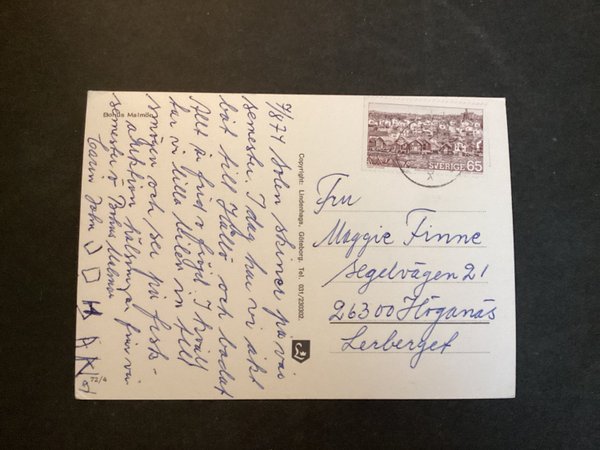 Bohus Malmön
7/8 74 Solen skiner på vår
semester. I dag har vi åkt
båt till Hållö och badat
Allt är frid o fröjd. I kväll
tar vi lilla bilen in till
smögen och ser på fisk-
auktion hälsningar från vår
semester o Bohus Malmön
Carin John
72/4
Copyright: Lindenhaga, Göteborg. Tel. 031/230302.
SVERIGE 65
Fru
Maggie Finne
Segelvägen 21
26300 Höganäs
Lerberget